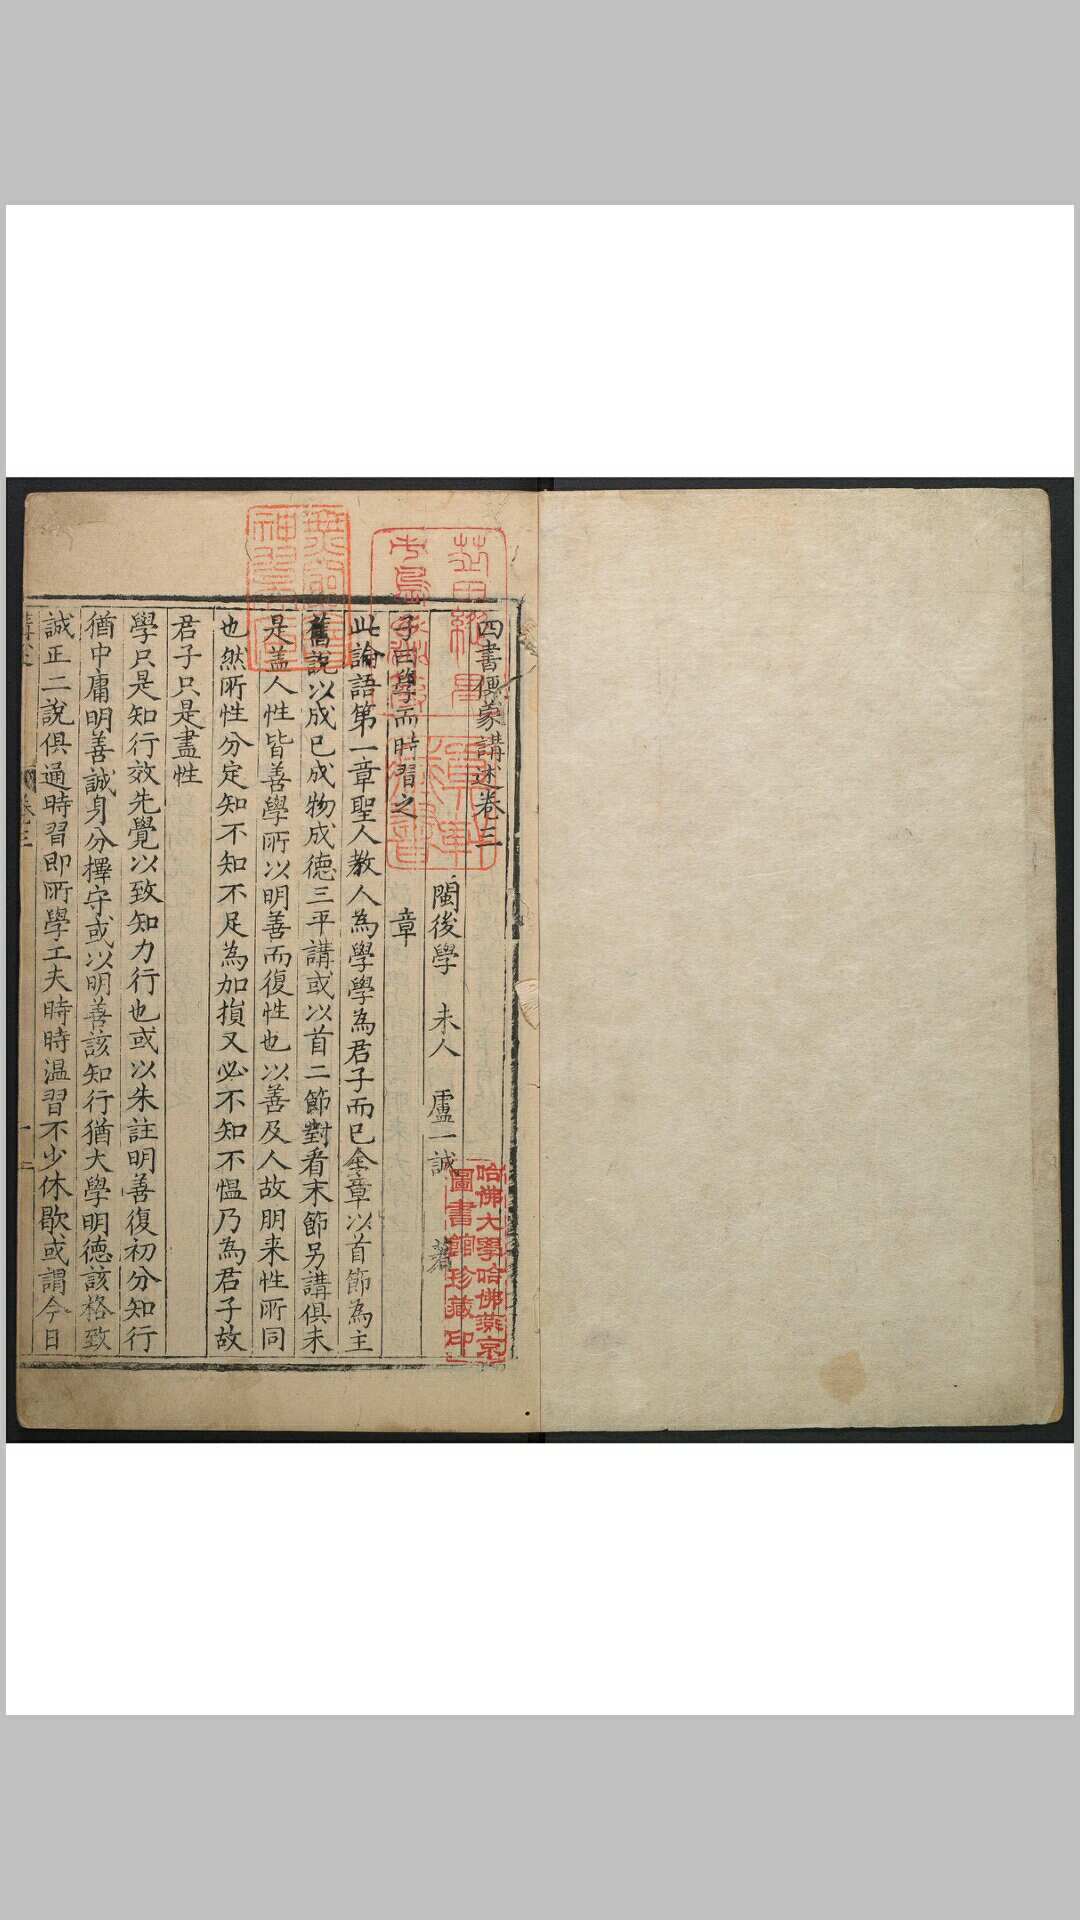 四書便蒙講述卷三
閩後學　未人　盧一誠　著
子曰學而時習之　章
此論語第一章聖人教人為學學為君子而已全章以首節為主
舊說以成已成物成德三平講或以首二節對看末節另講俱未
是盖人性皆善學所以明善而復性也以善及人故朋来性所同
也然所性分定知不知不足為加損又必不知不愠乃為君子故
君子只是盡性
學只是知行效先覺以致知力行也或以朱註明善復初分知行
猶中庸明善誠身分擇守或以明善該知行猶大學明德該格致
誠正二說俱通時習即所學工夫時時温習不少休歇或謂今日
講述
卷三
一
哈佛大學哈佛燕京
圖書館珍藏印